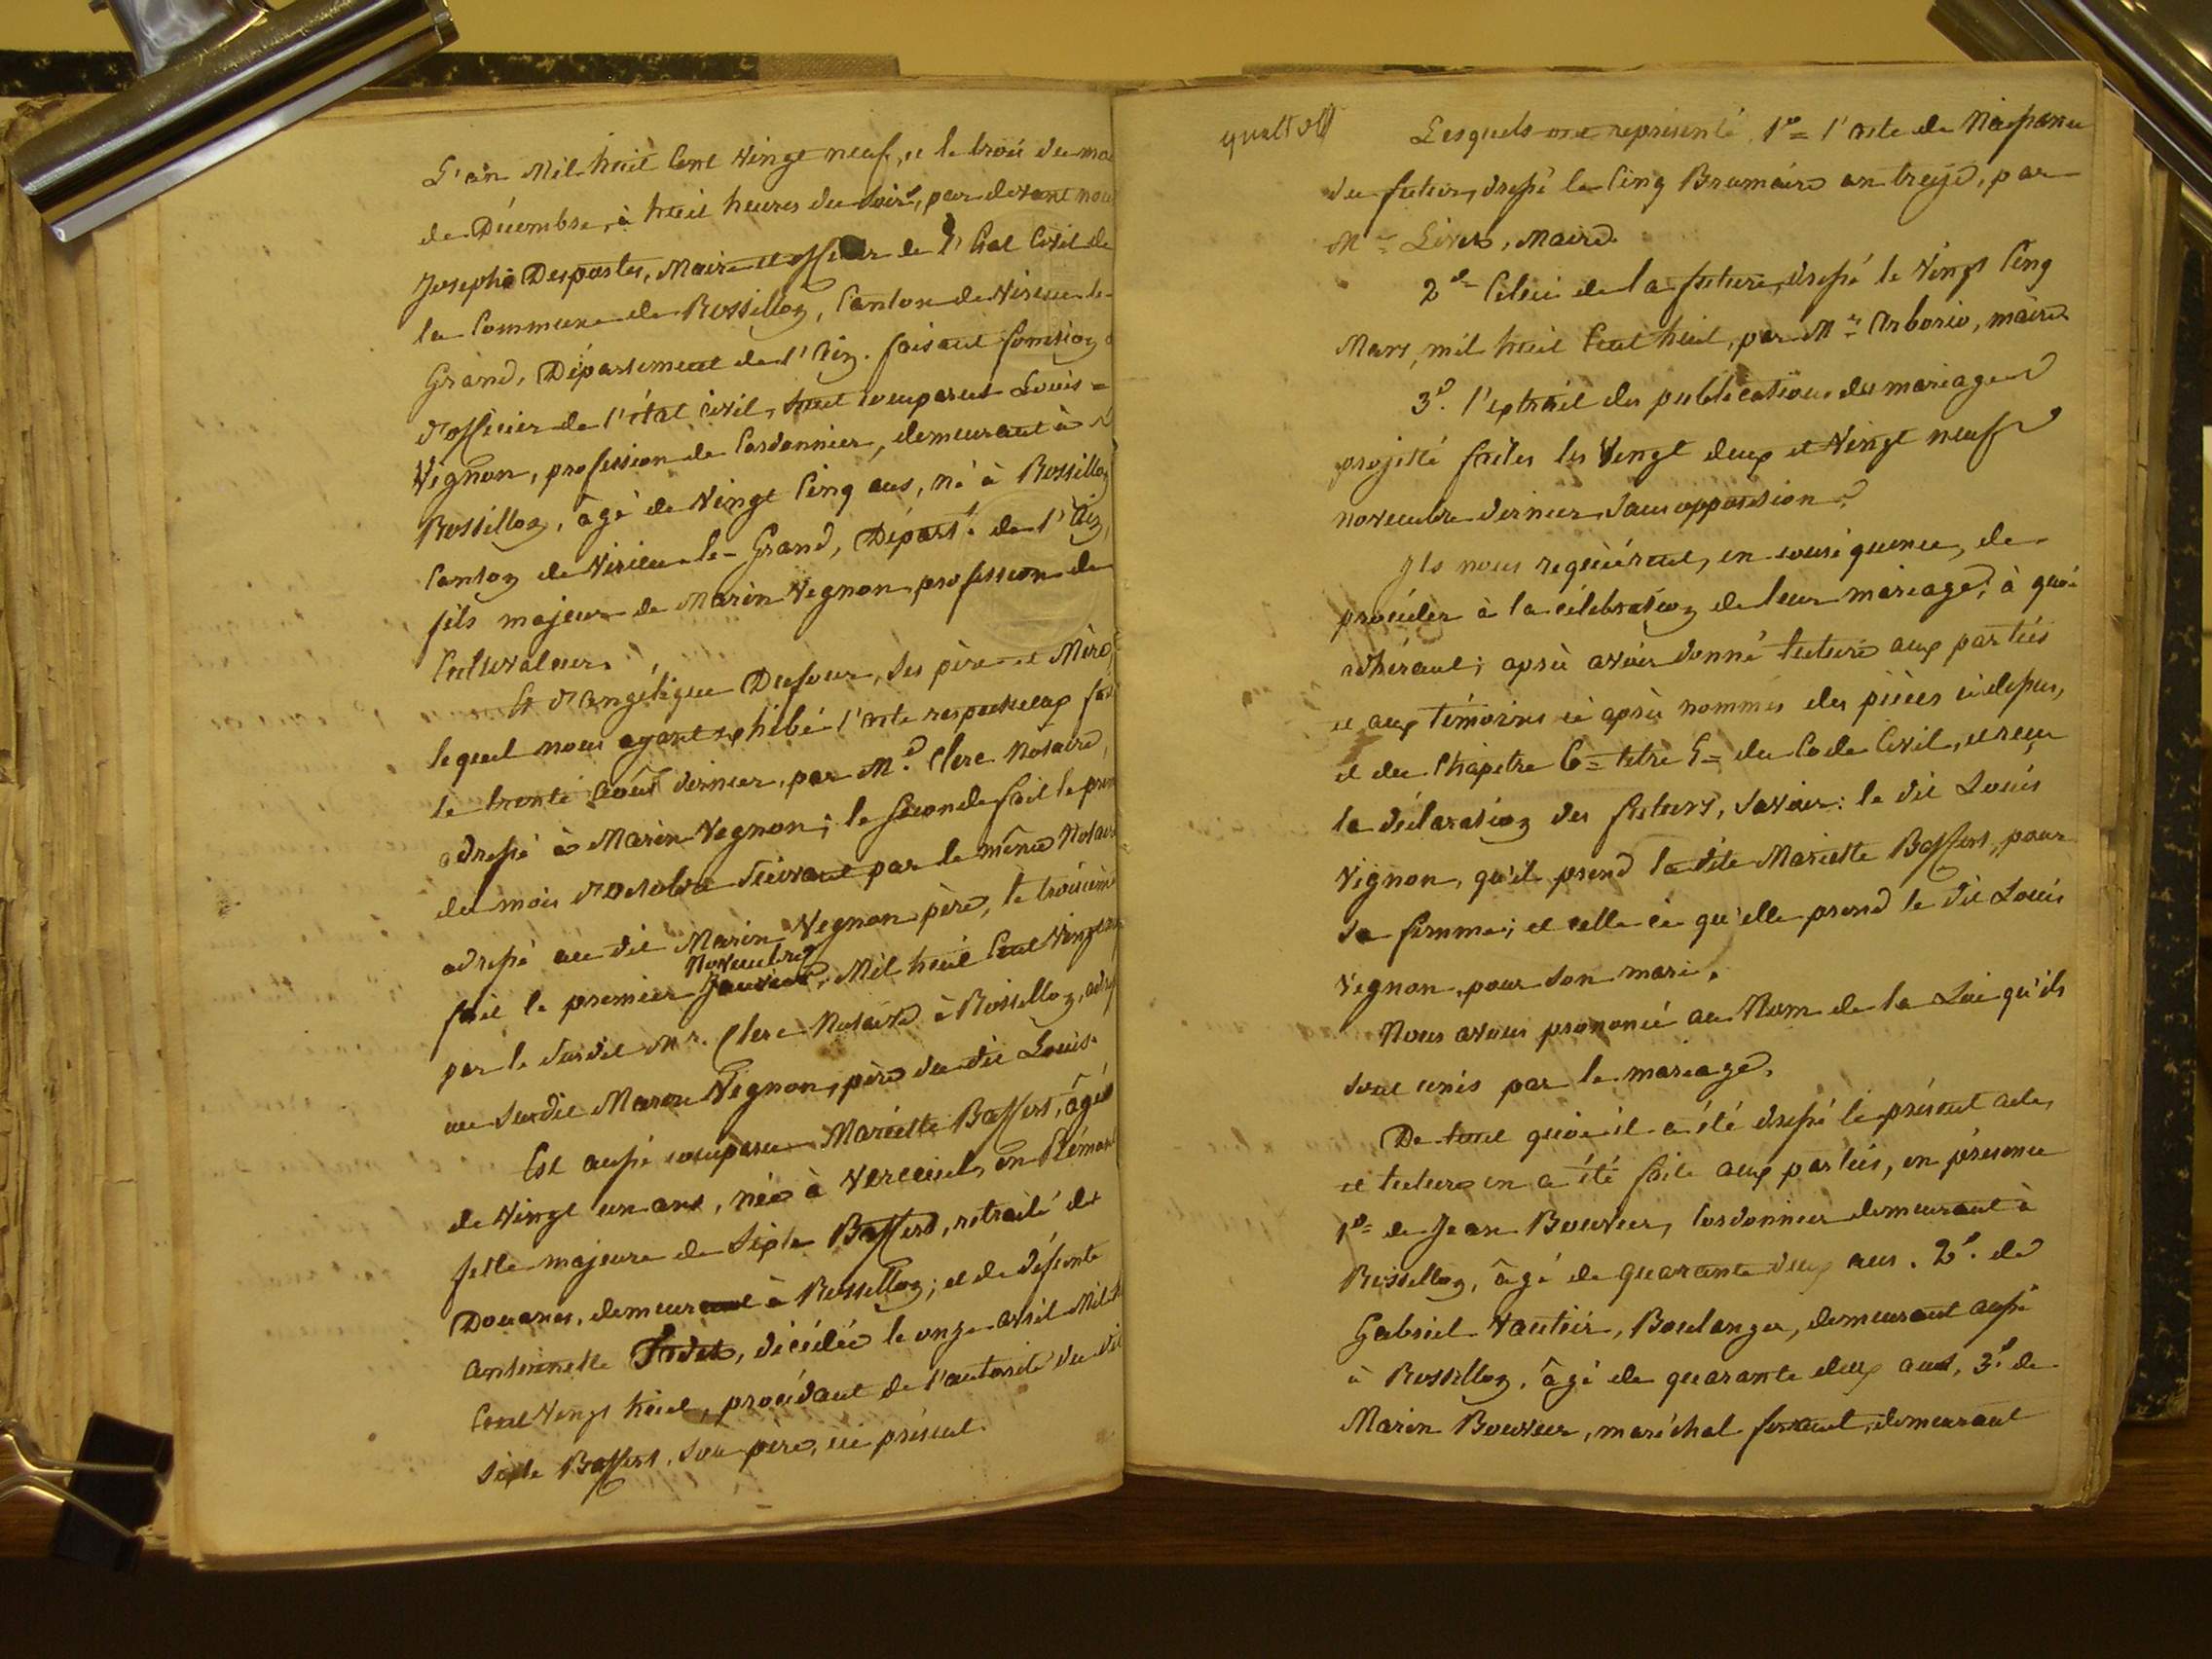 L'an Mil huit Cent Vingt neuf, et le trois du moi
de Décembre, à huit heures du Soir, par devant nou
Joseph Desportes, Maire et officier de l'Etat Civil de
la Commune de Rossillon, Canton de Virieu le
Grand, Département de l'Ain. faisant fonction
d'officier de l'état civil, sont comparus Louis =
Vignon, profession de Cordonnier, demeurant à
Rossillon, âgé de Vingt Cinq ans, né à Rossillon
Canton de Virieu-le-Grand, Départ.t de l'Ain,
fils majeur de Marin Vignon profession de
Cultivateur.
Et d'angélique Dufour, ses père et Mère,
lequel nous ayant exhibé l'acte respectueux fait
le trente août dernier, par M.e Clerc Notaire,
adressé à Marin Vignon; le second fait le prem
du mois d'octobre suivant par le même Notaire
adressé au dit Marin Vignon père, le troisième
Novembre
fait le premier Janvier, Mil huit Cent Vingt
par le Susdit Mr. Clerc Notaire à Rossillon, adr
au Susdit Marin Vignon, père du dit Louis.
Est aussi comparu Mariette Baffert, âgée
de Vingt un ans, née à Verceuil, en Piémont
fille majeure de Sixte Baffert, retraité des
Douanes, demeurant à Rossillon; et de défunte
Antoinette Fadet, décédée le onze avril Mil h
Cent Vingt huit, procédant de l'autorité du dit
Sixte Baffert, son père, ici présent.
Lesquels ont représenté, 1o = l'acte de Naissance
du futur, dressé le Cinq Brumaire an treize, par
Mr Livet, Maire.
2o = Celui de la future, dressé le Vingt Cinq
Mars, mil huit Cent huit, par Mr Arborio, maire
3o. l'extrait des publications du mariage
projetté faites les Vingt deux et Vingt neuf
novembre dernier, sans opposition.
Ils nous requièrent, en conséquence, de
procéder à la célébration de leur mariage; à quoi
adhérant; après avoir donné lecture aux parties
et aux témoins ci après nommés des pièces ci dessus,
et du Chapitre 6 = titre 5 = du Code Civil, et reçu
la déclaration des futurs, savoir: le dit Louis
Vignon, qu'il prend la dite Mariette Baffert, pour
sa femme; et celle ci qu'elle prend le dit Louis
Vignon, pour son mari.
Nous avons prononcé au Nom de la Loi qu'ils
sont unis par le mariage.
De tout quoi il a été dressé le présent acte,
et lecture en a été faite aux parties, en présence
1o = de Jean Bouvier, Cordonnier demeurant à
Rossillon, âgé de quarante deux ans. 2o. de
Gabriel Vautier, Boulanger, demeurant aussi
à Rossillon, âgé de quarante deux ans, 3o. de
Marin Bouvier, maréchal ferrant, demeurant